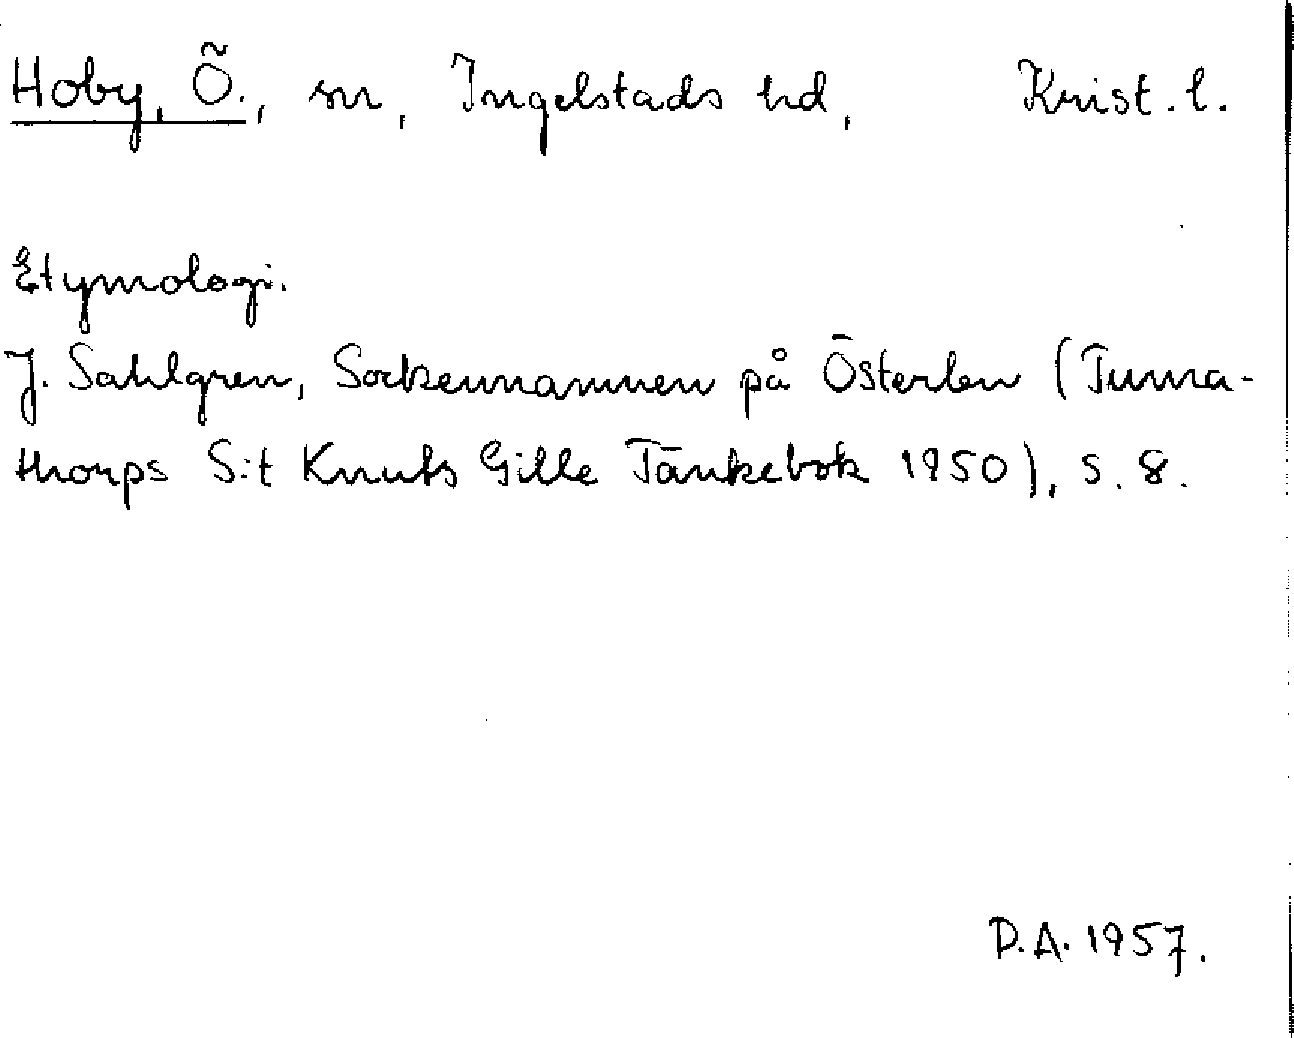 Hoby, Ö., sn, Ingelstads hd, Krist. l.
Etymologi.
J. Sahlgren, Sockennamnen på Österlen (Tuma-
thorps S:t Knuts Gille Tänkebok 1950), s. 8.
D.A. 1957.